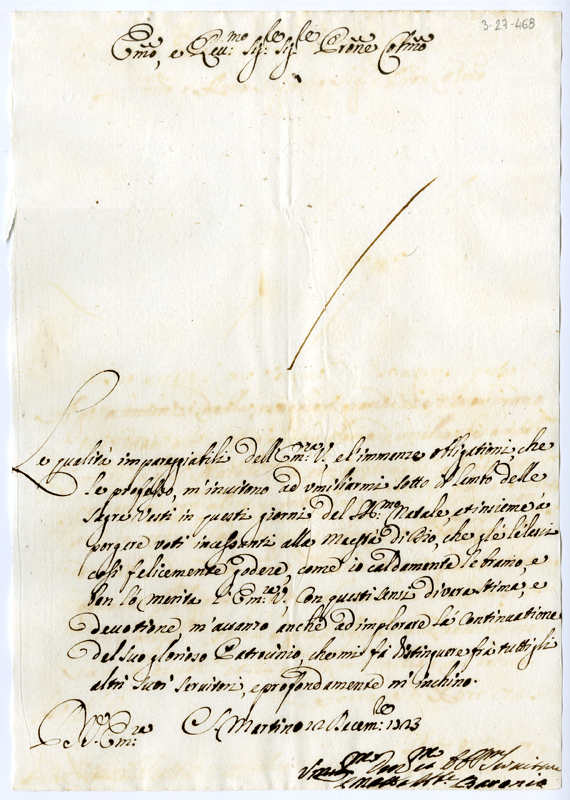 3-27-468
Emõ, e Reu:mo Sig:re Sig:re Prõne Colmõ
Le qualità impareggiabili dell'Em:za V, e l'immenze obligationi, che
le professo, m'inuitono ad vmiliarmi sotto il lembo delle
sagre Vesti in questi giorni del SS.mo Natale, et insieme à
porgere voti incessenti alla Maestà di Dio, che glé li lasci
così felicemente godere, come io caldamente le bramo, e
ben lo merita l'Em:za V, Con questi sensi di vera stima, e
devotione, m'auanzo anche ad implorare la Continuatione
del suo glorioso Patrocinio, che mi fà distinguere frà tutti gli
altri suoi seruitori, e profondamente m'inchino.
D. V. Em:za S. Martino 12 Decem:re 1723
Vmo Deu:mo Obl:mo Seruitore
Baronio